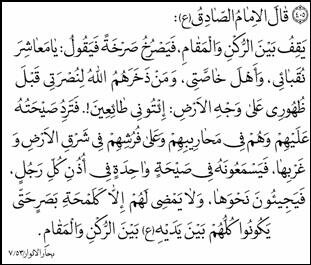 ٤٠٥ قَالَ الإِمَامُ الصَّادِقُ (ع):
يَقِفُ بَيْنَ الرُّكْنِ وَالْمَقَامِ، فَيَصْرُخُ صَرْخَةً فَيَقُولُ: يَا مَعَاشِرَ
نُقَبَائِي، وَأَهْلَ خَاصَّتِي، وَمَنْ ذَخَرَهُمُ اللهُ لِنُصْرَتِي قَبْلَ
ظُهُورِي عَلَى وَجْهِ الأَرْضِ: اِئْتُونِي طَائِعِينَ!. فَتَرِدُ صَيْحَتُهُ
عَلَيْهِمْ وَهُمْ فِي مَحَارِيبِهِمْ وَعَلَى فُرُشِهِمْ فِي شَرْقِ الأَرْضِ وَ
غَرْبِهَا، فَيَسْمَعُونَهُ فِي صَيْحَةٍ وَاحِدَةٍ فِي أُذُنِ كُلِّ رَجُلٍ،
فَيَجِيئُونَ نَحْوَهَا، وَلَا يَمْضِي لَهُمْ إِلَّا كَلَمْحَةِ بَصَرٍ حَتَّى
يَكُونُوا كُلُّهُمْ بَيْنَ يَدَيْهِ (ع) بَيْنَ الرُّكْنِ وَالْمَقَامِ.
بحار الانوار ٧/٥٣